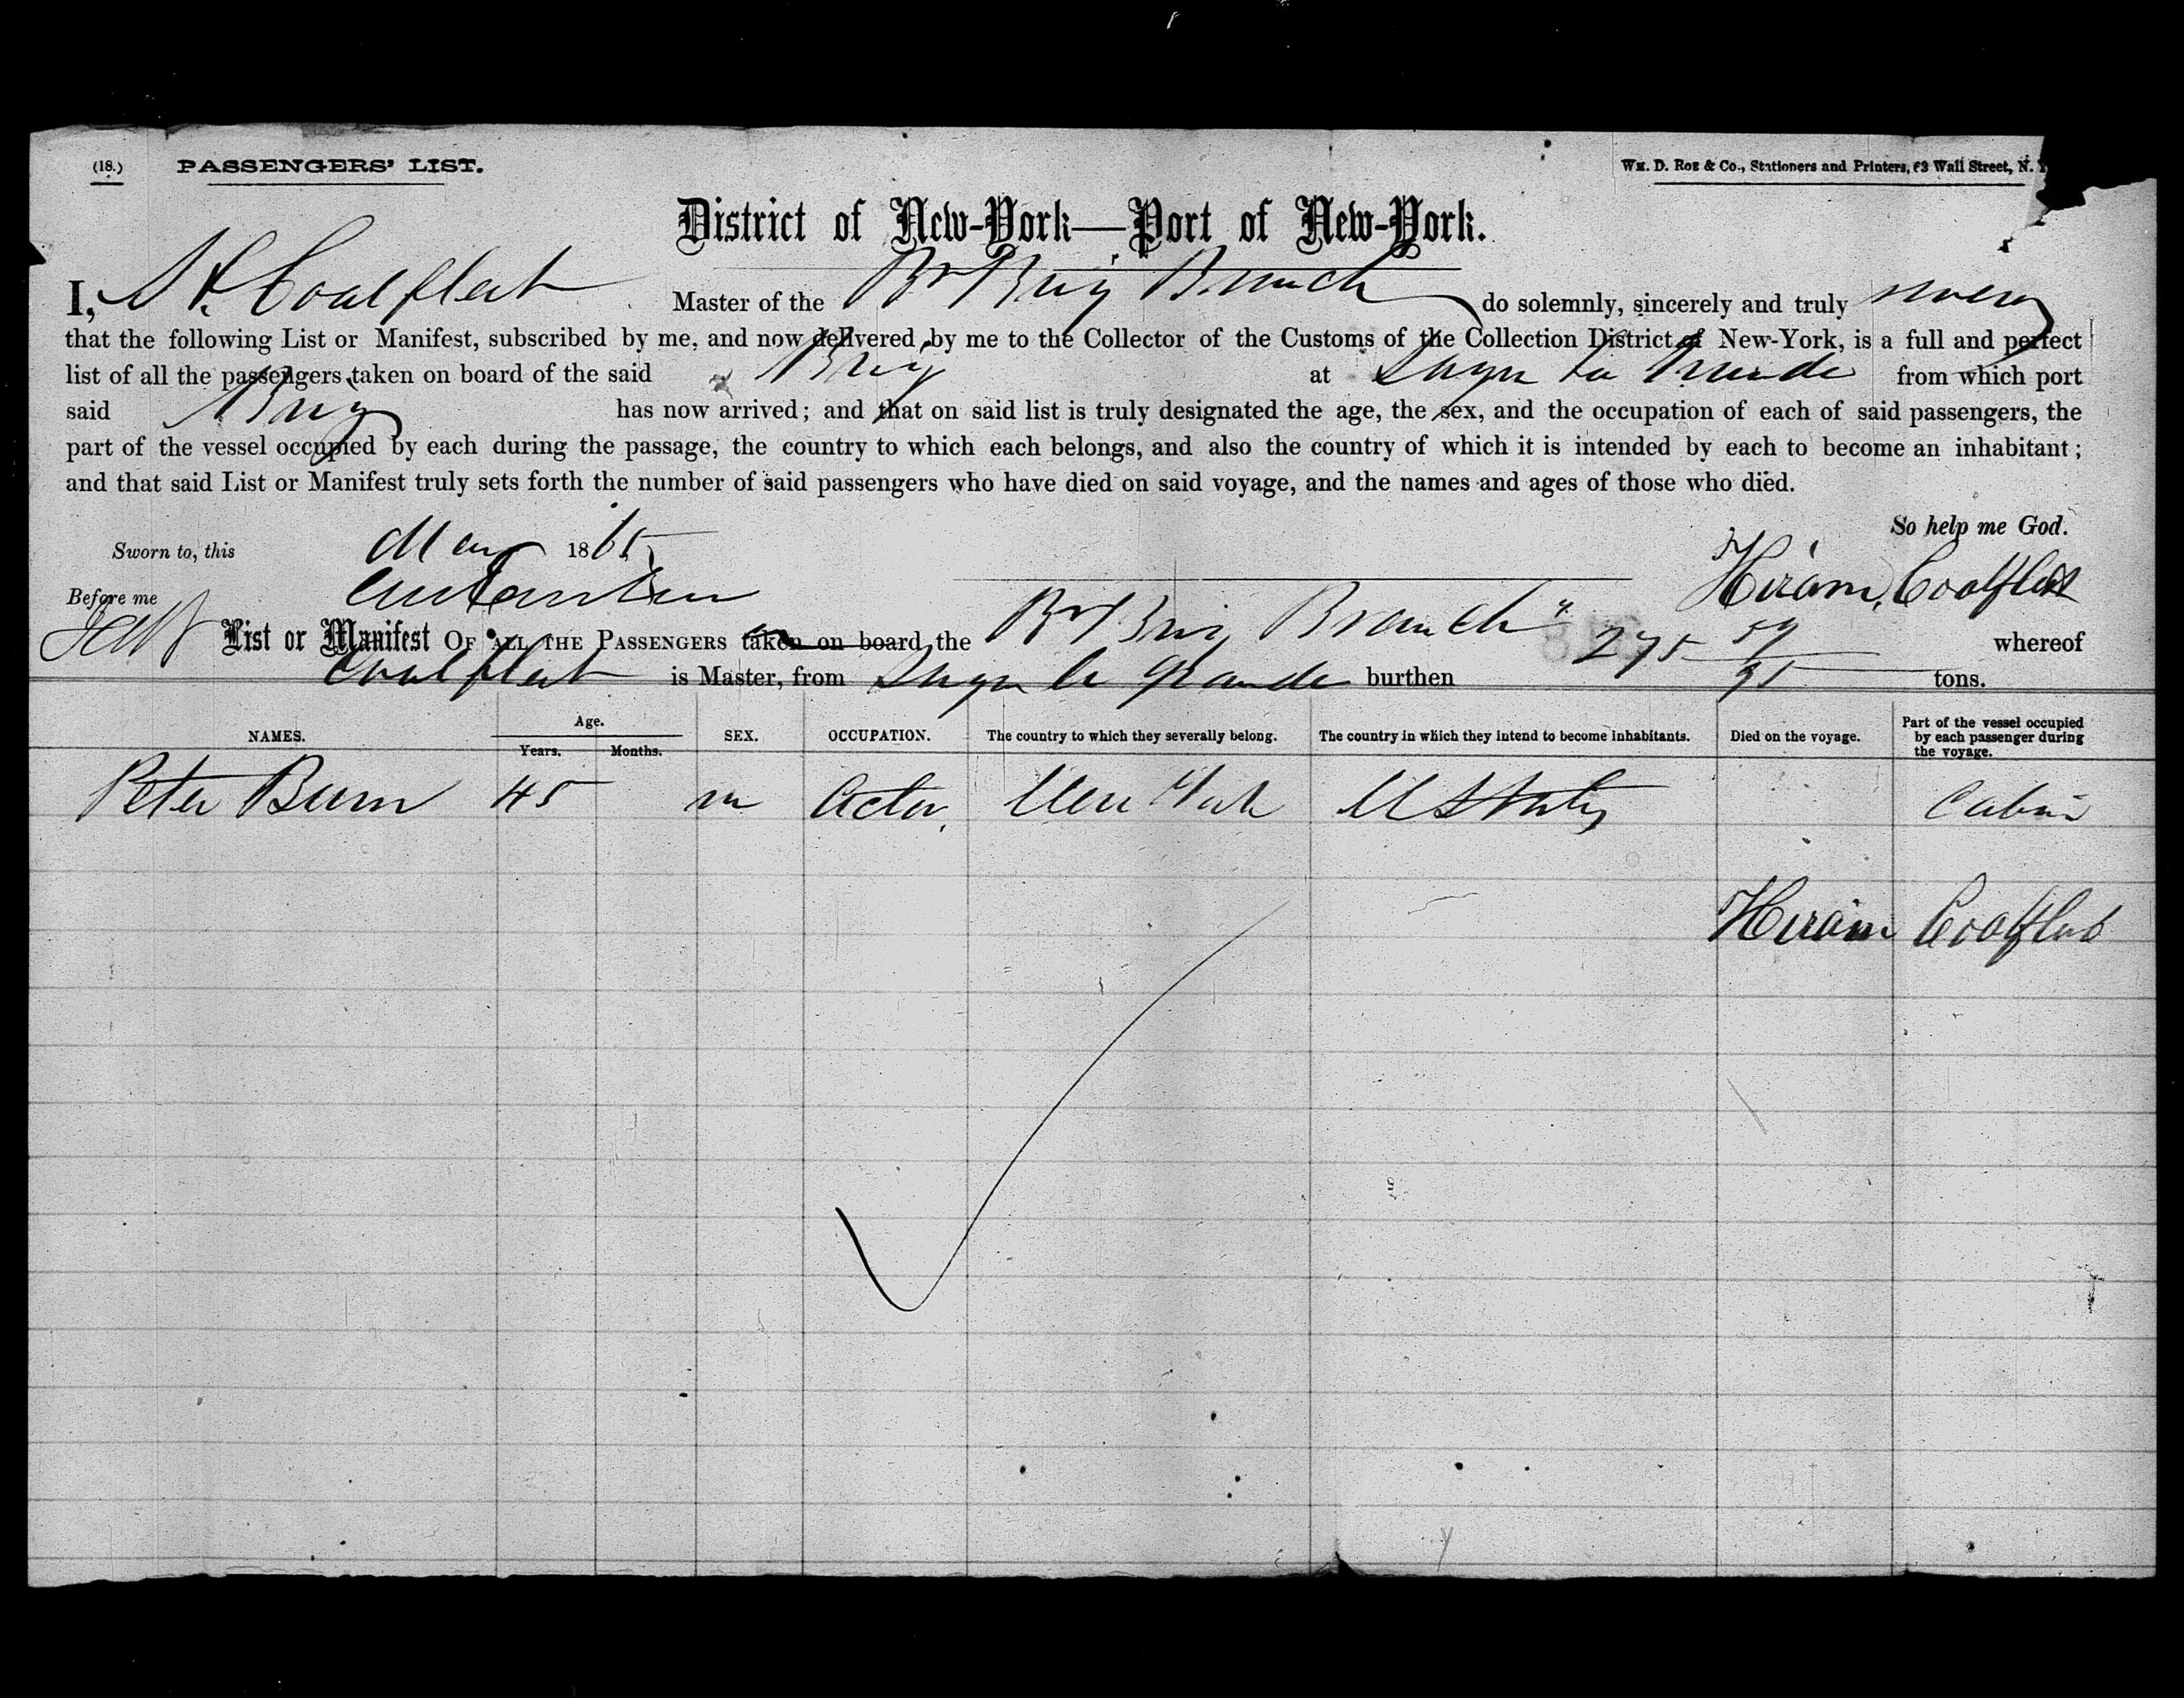 (18.) PASSENGERS' LIST. Wm. D. Roe & Co., Stationers and Printers, 63 Wall Street, N. Y
District of New-York—Port of New-York.
I, H. Coalfleet Master of the Br Brig Branch do solemnly, sincerely and truly swear
that the following List or Manifest, subscribed by me, and now delivered by me to the Collector of the Customs of the Collection District of New-York, is a full and perfect
list of all the passengers taken on board of the said Brig at Sagua La Grande from which port
said Brig has now arrived; and that on said list is truly designated the age, the sex, and the occupation of each of said passengers, the
part of the vessel occupied by each during the passage, the country to which each belongs, and also the country of which it is intended by each to become an inhabitant;
and that said List or Manifest truly sets forth the number of said passengers who have died on said voyage, and the names and ages of those who died.
So help me God.
Sworn to, this May 1865
Hiram Coalfleet
Before me
List or Manifest OF ALL THE PASSENGERS taken on board the Br Brig Branch " 275 59/95 whereof
Coalfleet is Master, from Sagua la Grande burthen tons.
NAMES. Age. Years. Months. SEX. OCCUPATION. The country to which they severally belong. The country in which they intend to become inhabitants. Died on the voyage. Part of the vessel occupied by each passenger during the voyage.
Peter Burn 45 m Actor. New York U States Cabin
Hiram Coalfleet